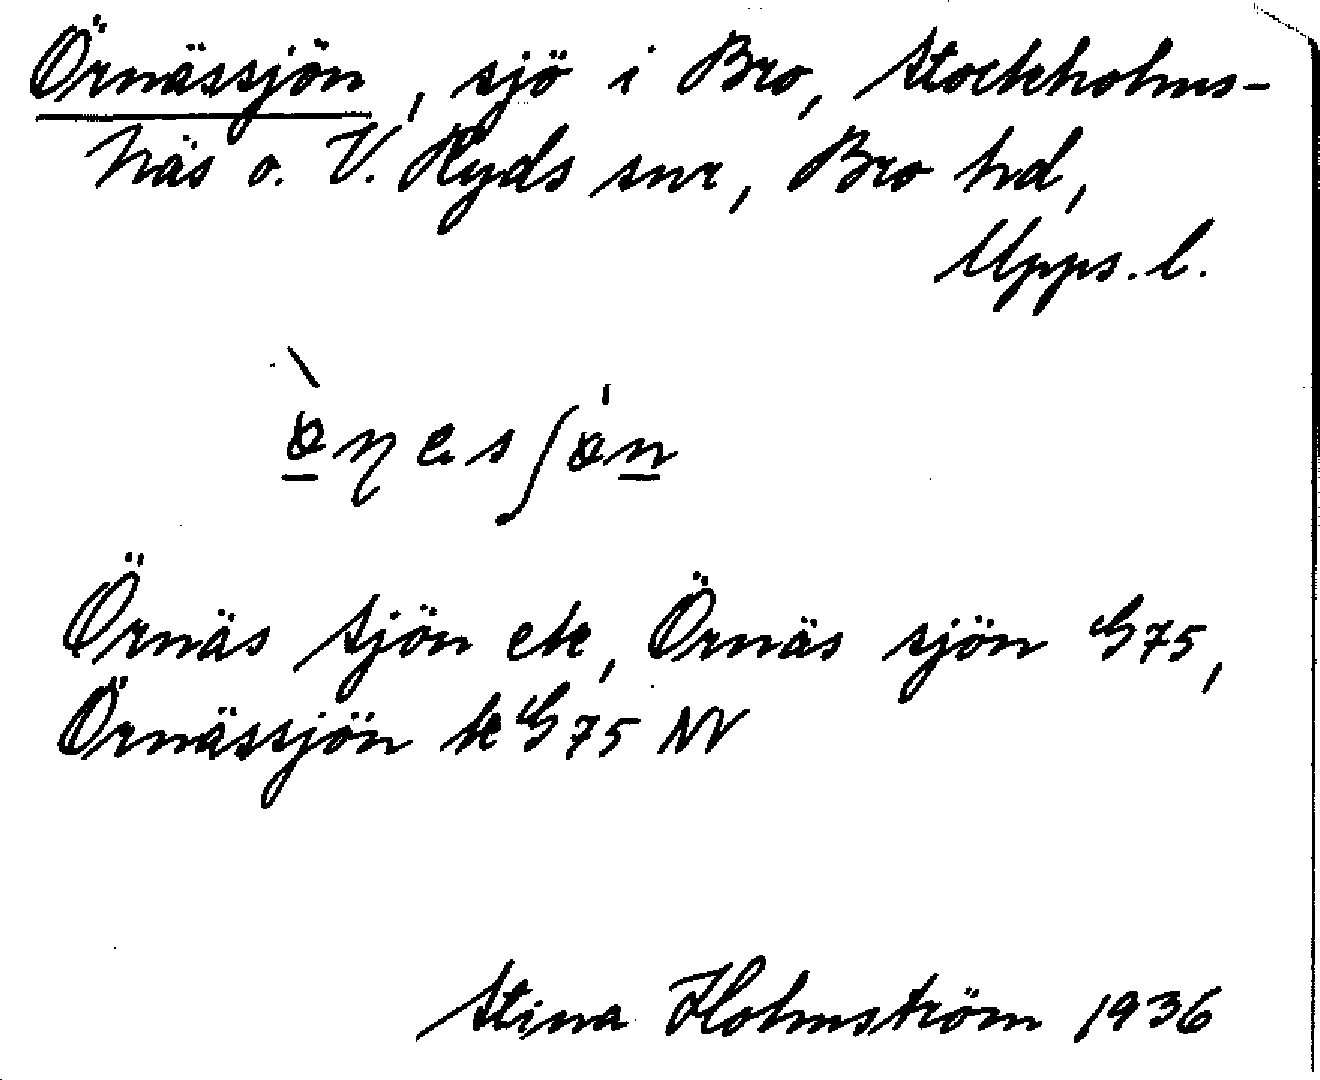 Örnässjön, sjö i Bro, Stockholms-
Näs o. V. Ryds snr, Bro hd,
Upps. l.
Örnäs Sjön ek, Örnäs sjön G75,
Örnässjön kG75 NV
Stina Holmström 1936